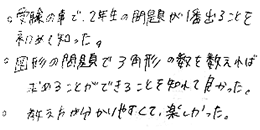 ○受験の事で、2年生の問題が1番出ることを
初めて知った。
○図形の問題で3角形の数を数えれば
求めることができることを知れて良かった。
○教え方が分かりやすくて、楽しかった。